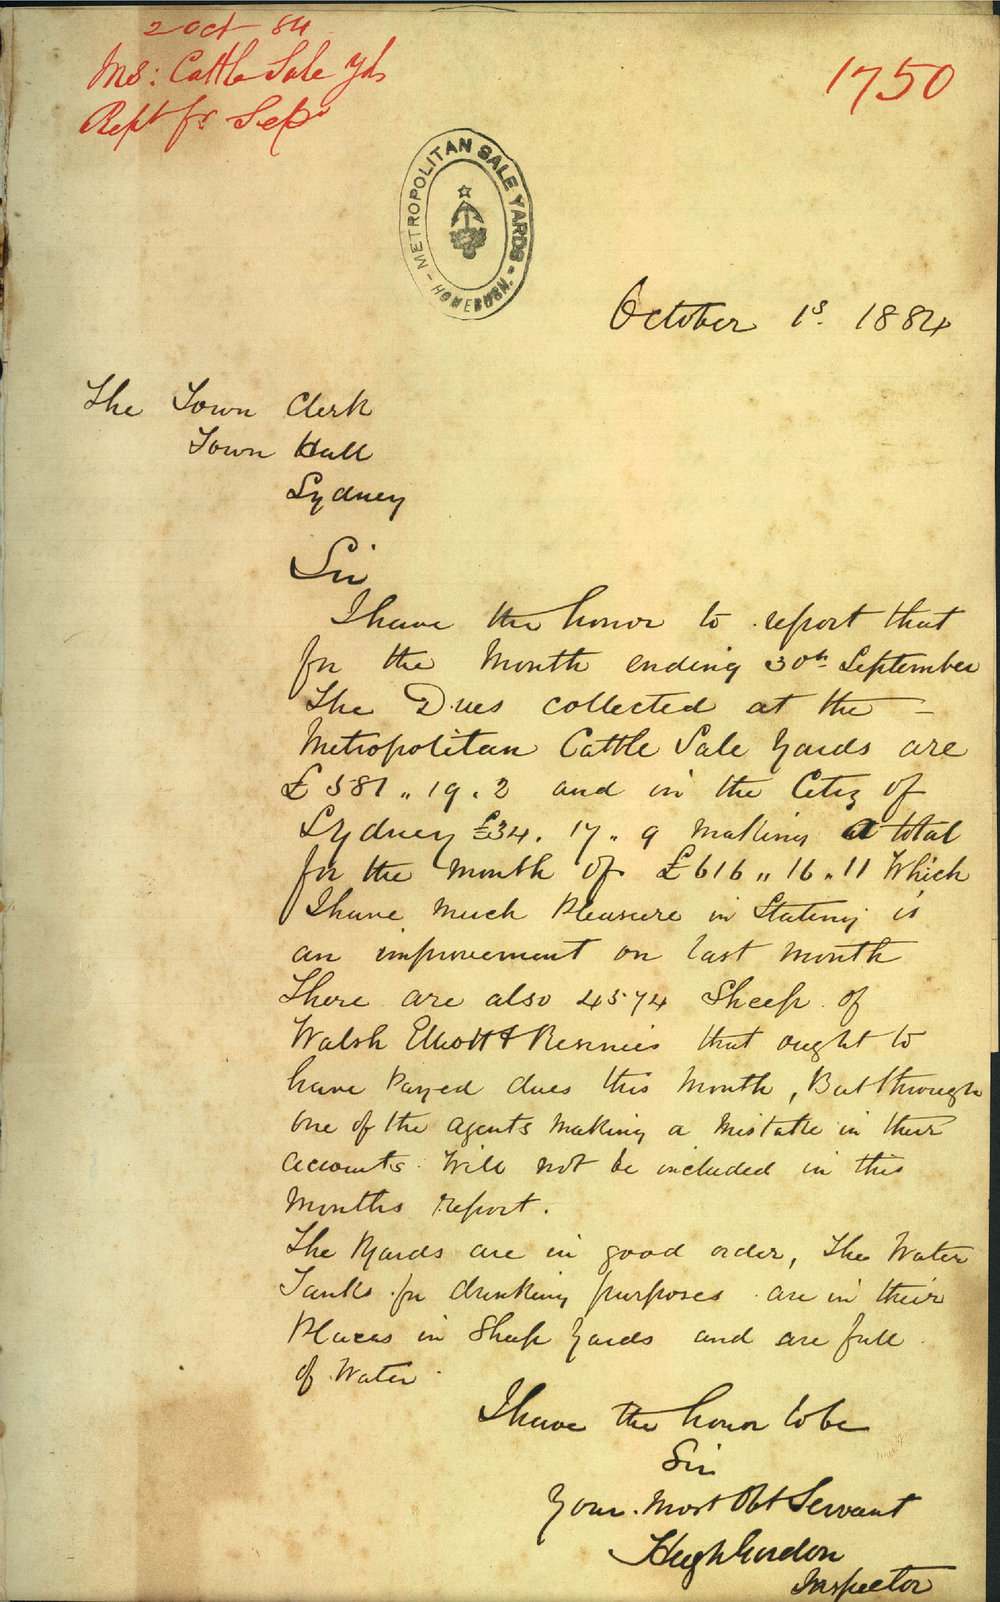 2 Oct 84
Ms: Cattle Sale Yds
Rept fr Sepr
1750
METROPOLITAN SALE YARDS
HOMEBUSH.
October 1s. 1884
The Town Clerk
Town Hall
Sydney
Sir
I have the honor to report that
for the Month ending 30th September
The Dues collected at the –
Metropolitan Cattle Sale Yards are
£581 „ 19 . 2 and in the City of
Sydney £34 . 17 „ 9 making a total
for the month of £616 „ 16 „ 11 Which
I have much Pleasure in Stating is
an improvement on last month
There are also 4574 Sheep of
Walsh Elliott & Rennies that ought to
have Payed dues this Month, But through
one of the agents making a mistake in their
accounts will not be included in this
Months report.
The Yards are in good order, The Water
Tanks for drinking purposes are in their
Places in Sheep Yards and are full
of Water
I have the honor to be
Sir
Your Most Obt Servant
Hugh Gordon
Inspector